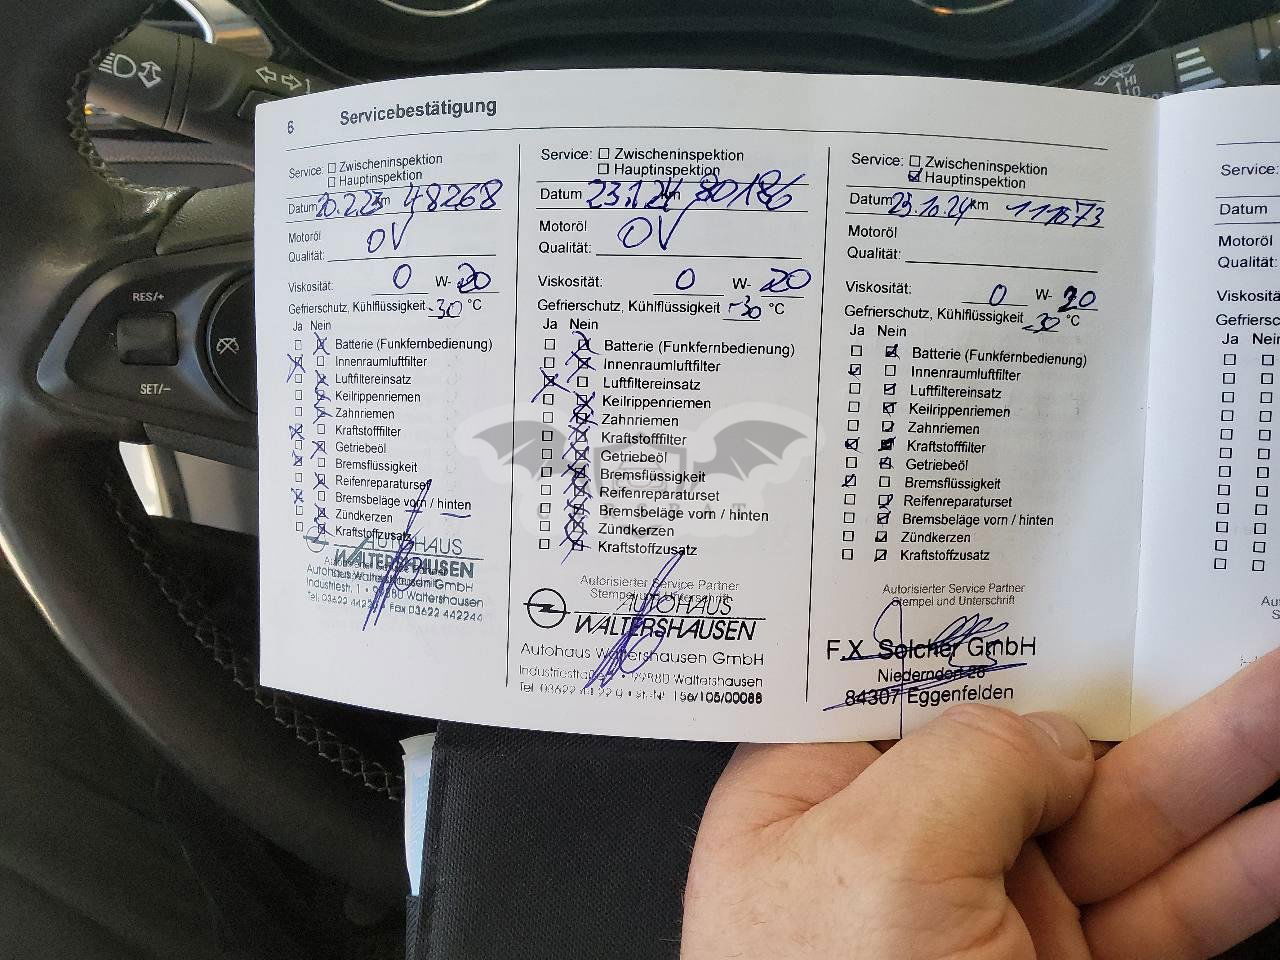 6 Servicebestätigung
Service: Zwischeninspektion
Hauptinspektion
Datum 20.2.23 km 48268
Motoröl
Qualität: OV
Viskosität: 0 W- 20
Gefrierschutz, Kühlflüssigkeit -30 °C
Ja Nein
Batterie (Funkfernbedienung)
Innenraumluftfilter
Luftfiltereinsatz
Keilrippenriemen
Zahnriemen
Kraftstofffilter
Getriebeöl
Bremsflüssigkeit
Reifenreparaturset
Bremsbeläge vorn / hinten
Zündkerzen
Kraftstoffzusatz
AUTOHAUS
WALTERSHAUSEN
Autohaus Waltershausen GmbH
Industriestr. 1 • 99880 Waltershausen
Tel. 03622 Fax 03622 442244
Service: Zwischeninspektion
Hauptinspektion
Datum 23.1.24 km 80186
Motoröl
Qualität: OV
Viskosität: 0 W- 20
Gefrierschutz, Kühlflüssigkeit -30 °C
Ja Nein
Batterie (Funkfernbedienung)
Innenraumluftfilter
Luftfiltereinsatz
Keilrippenriemen
Zahnriemen
Kraftstofffilter
Getriebeöl
Bremsflüssigkeit
Reifenreparaturset
Bremsbeläge vorn / hinten
Zündkerzen
Kraftstoffzusatz
Autorisierter Service Partner
Stempel und Unterschrift
AUTOHAUS
WALTERSHAUSEN
Autohaus Waltershausen GmbH
99880 Waltershausen
156/105/00088
Service: Zwischeninspektion
Hauptinspektion
Datum 23.10.24 km 111673
Motoröl
Qualität:
Viskosität: 0 W- 20
Gefrierschutz, Kühlflüssigkeit -30 °C
Ja Nein
Batterie (Funkfernbedienung)
Innenraumluftfilter
Luftfiltereinsatz
Keilrippenriemen
Zahnriemen
Kraftstofffilter
Getriebeöl
Bremsflüssigkeit
Reifenreparaturset
Bremsbeläge vorn / hinten
Zündkerzen
Kraftstoffzusatz
Autorisierter Service Partner
Stempel und Unterschrift
F.X. Solcher GmbH
Niederndorf 26
84307 Eggenfelden
Service:
Datum
Motoröl
Qualität:
Ja Nein
RES/+
SET/-
HI
LO